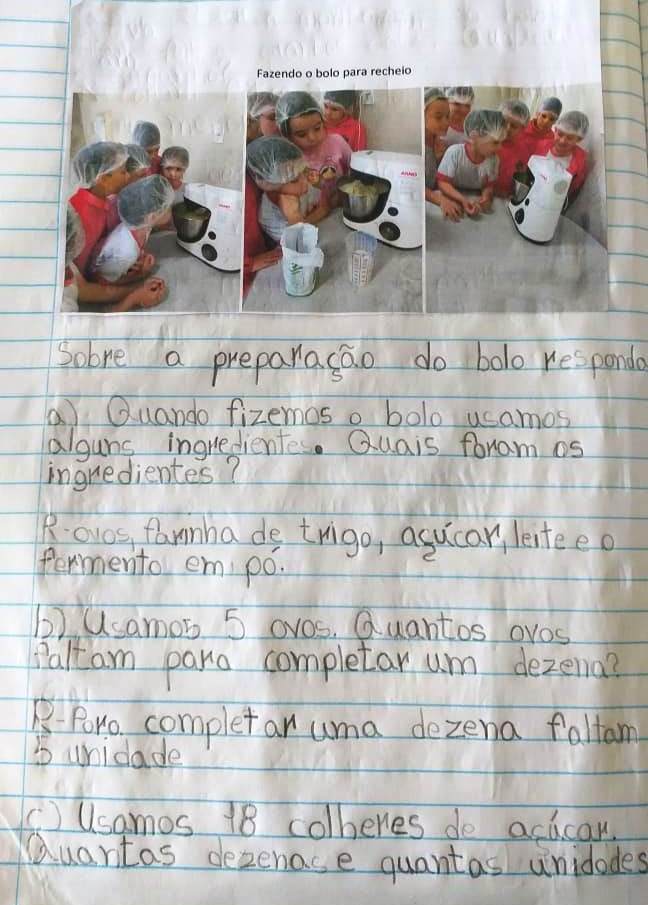 Fazendo o bolo para recheio
ARNO
Sobre a preparação do bolo responda
a) Quando fizemos o bolo usamos
alguns ingredientes. Quais foram os
ingredientes?
R-ovos, farinha de trigo, açúcar, leite e o
fermento em pó.
b) Usamos 5 ovos. Quantos ovos
faltam para completar um dezena?
R-Para completar uma dezena faltam
5 unidade
c) Usamos 18 colheres de açúcar.
Quantas dezenas e quantas unidades